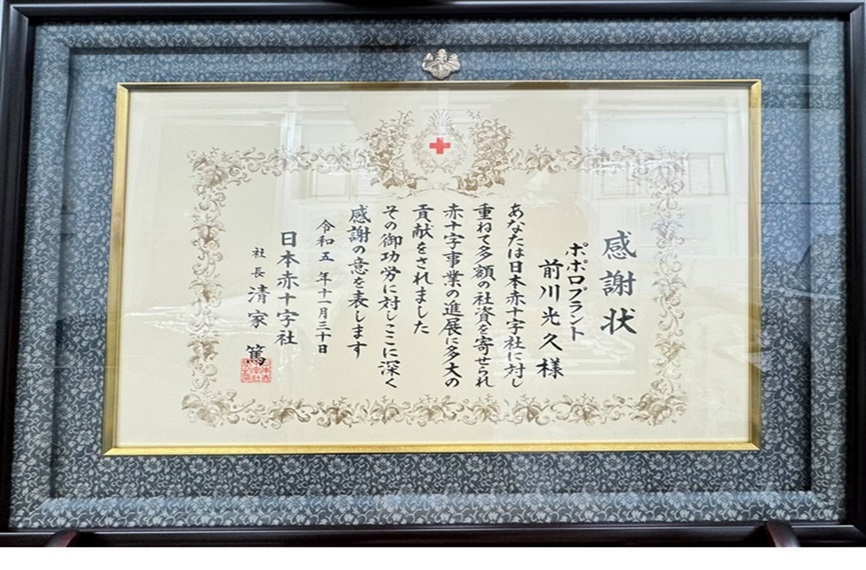 感謝状
ポポロプラント
前川光久様
あなたは日本赤十字社に対し
重ねて多額の社資を寄せられ
赤十字事業の進展に多大の
貢献をされました
その御功労に対しここに深く
感謝の意を表します
令和五年十一月三十日
日本赤十字社
社長 清家 篤